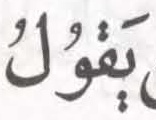 يَقُولُ